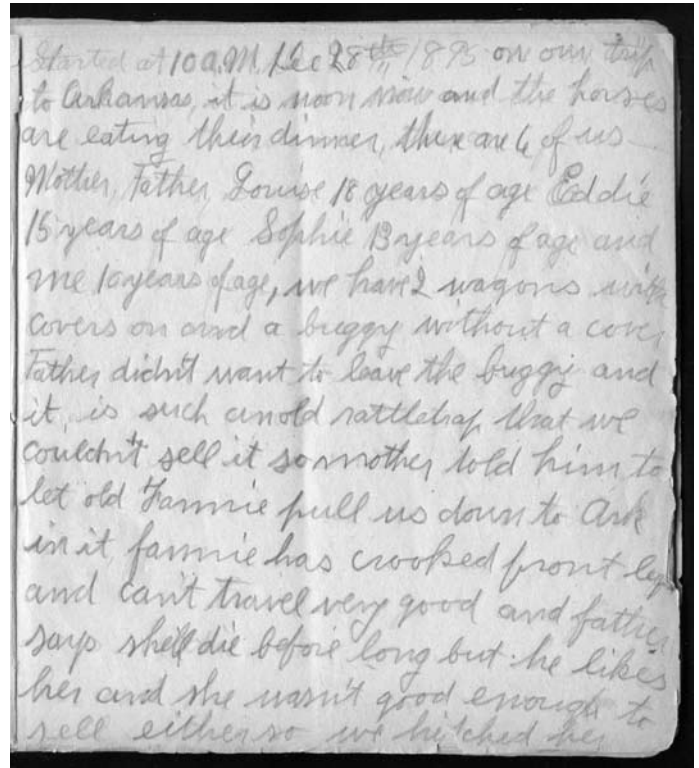 Started at 10 a.m. Dec 28th 1895 on our trip
to Arkansas, it is noon now and the horses
are eating their dinner, there are 6 of us
Mother, Father Louise 18 years of age Eddie
15 years of age Sophie 13 years of age and
me 10 years of age, we have 2 wagons with
covers on and a buggy without a cover
Father didn't want to leave the buggy and
it, is such an old rattletrap that we
couldn't sell it so mother told him to
let old Fannie pull us down to Ark
in it, fannie has crooked front legs
and can't travel very good and father
says she'll die before long but he likes
her and she wasn't good enough to
sell either so we hitched her